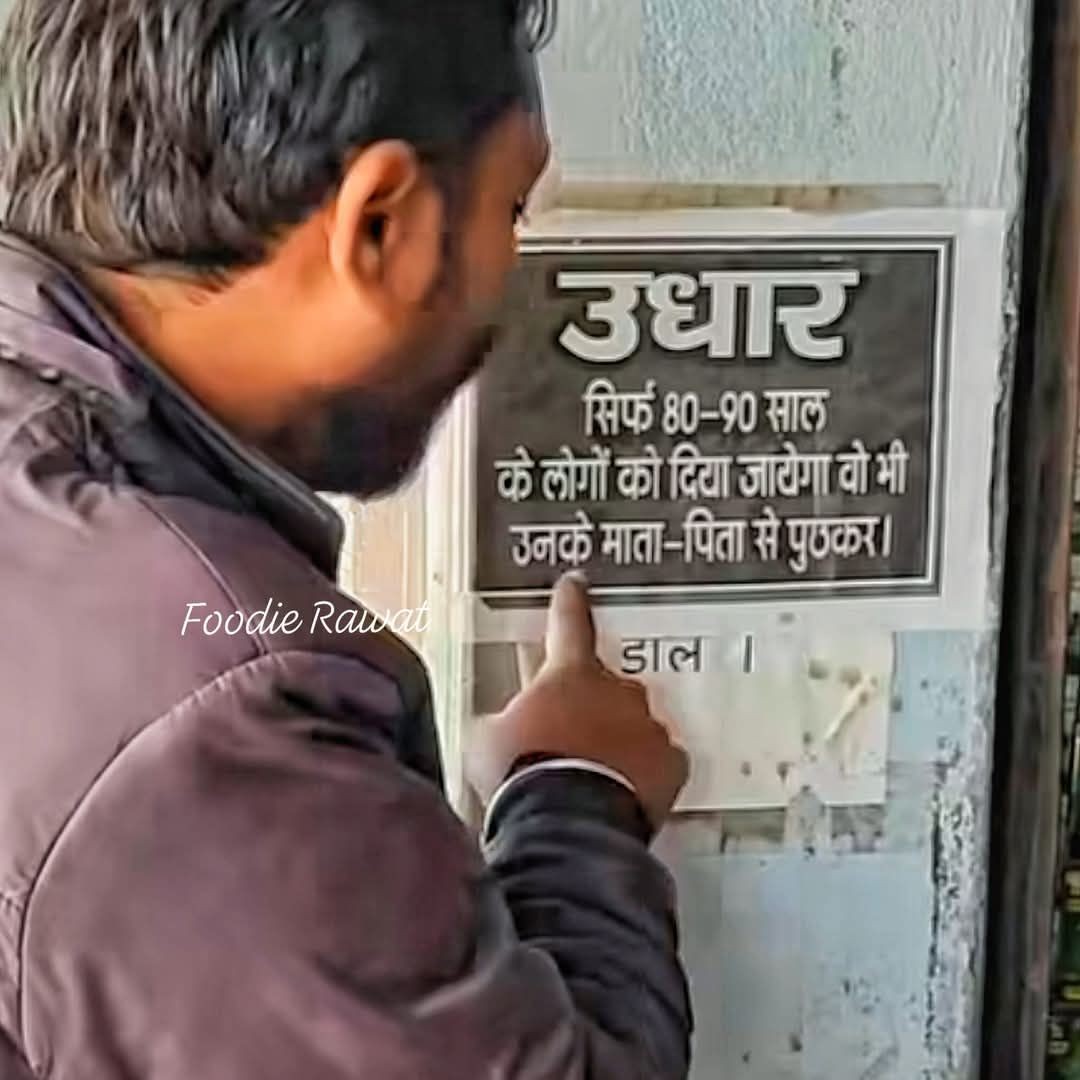 उधार
सिर्फ 80-90 साल
के लोगों को दिया जायेगा वो भी
उनके माता-पिता से पुछकर।
Foodie Rawat
डाल ।